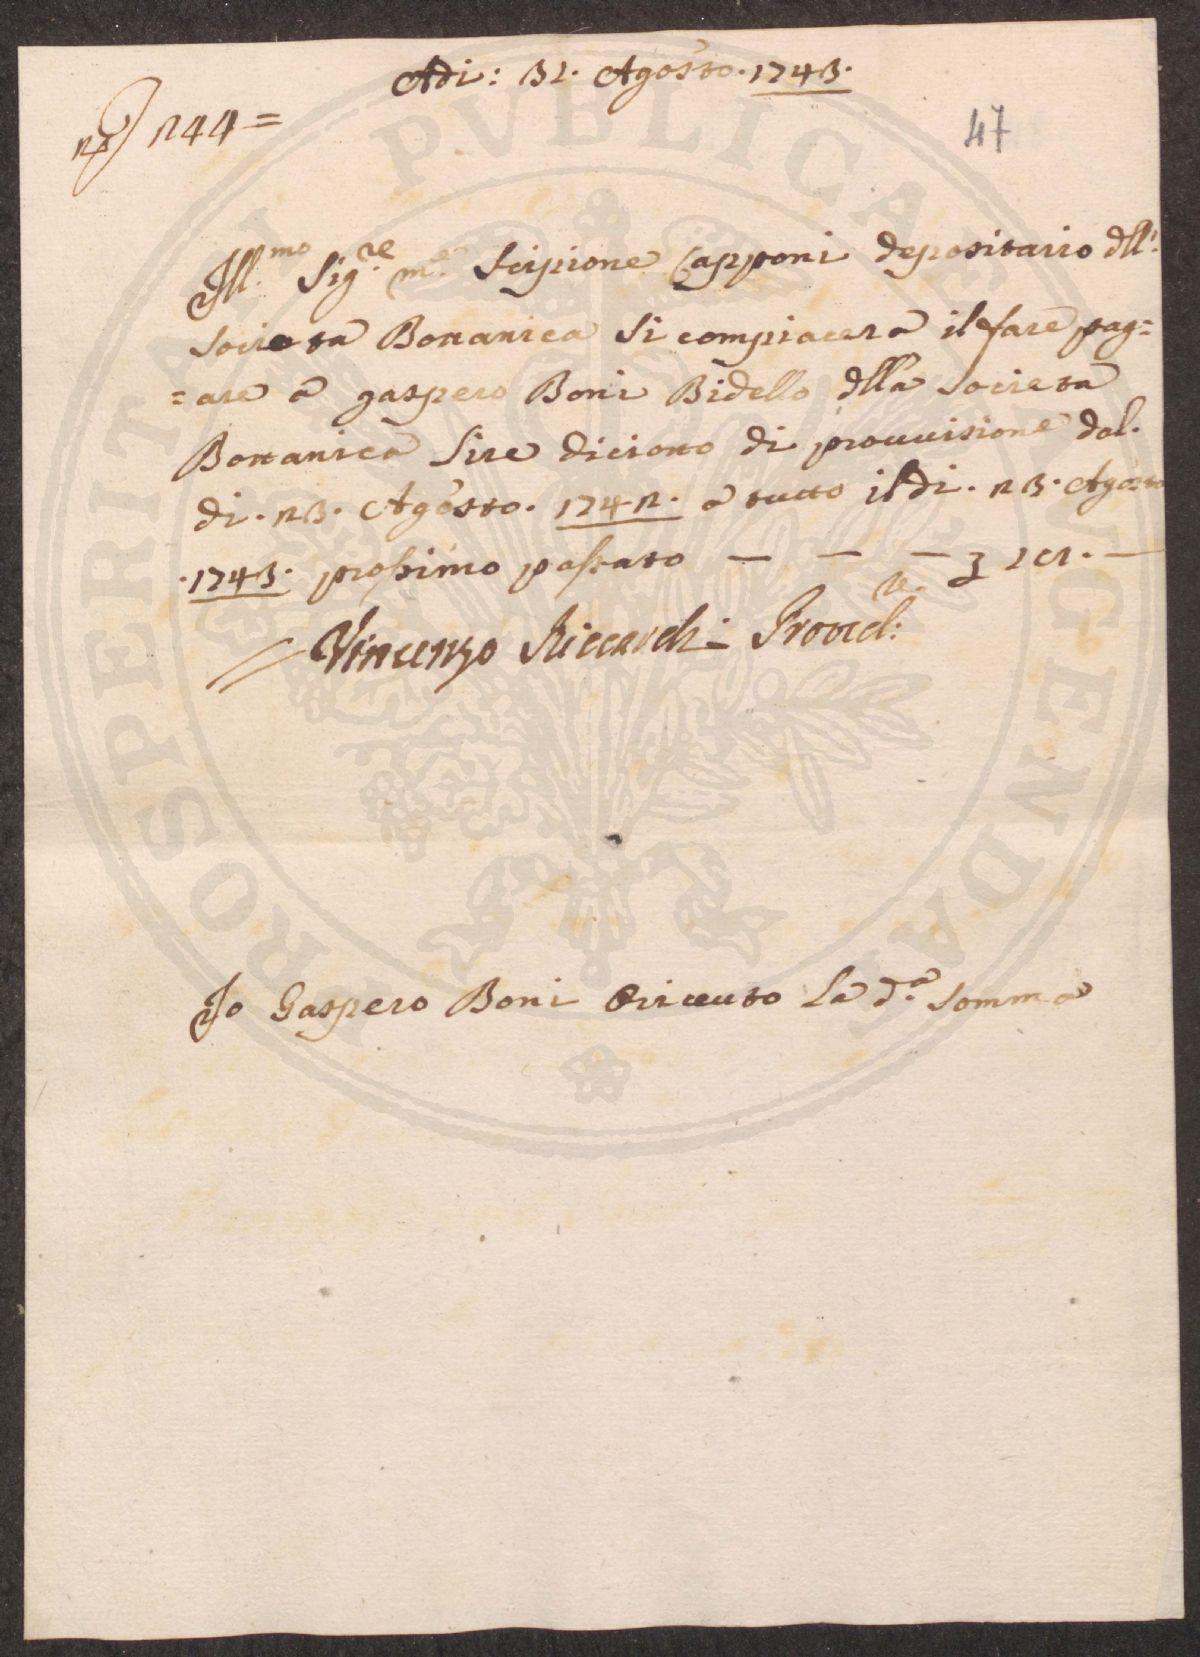 Adi: 31. Agosto. 1743.
n244=
47
Ill.mo Sig.re m.e Scipione Capponi depositario dll.
Società Bottanica si compiacerà il fare pag=
=are a gaspero Boni Bidello dlla Società
Bottanica Lire diciotto di provvisione dal.
di. 23. Agosto. 1742. a tutto il di. 23. Agosto
.1743. prossimo passato — — —
Vincenzo Riccardi Provved.re
Io Gaspero Boni ò riceuto La d.a somma
PROSPERITATI PVBLICAE AVGENDAE